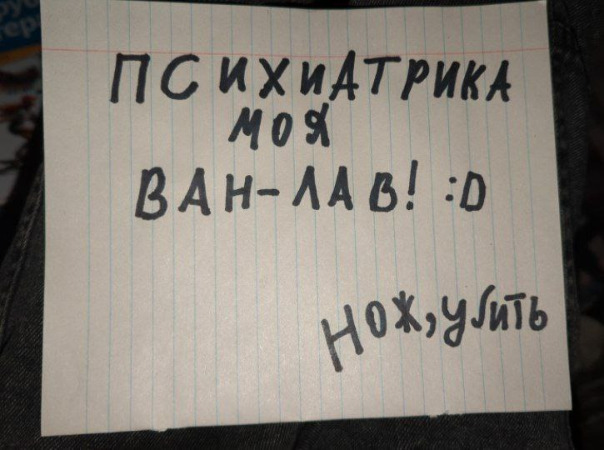 ПСИХИАТРИКА
МОЯ
ВАН-ЛАВ! :D
Нож, убить